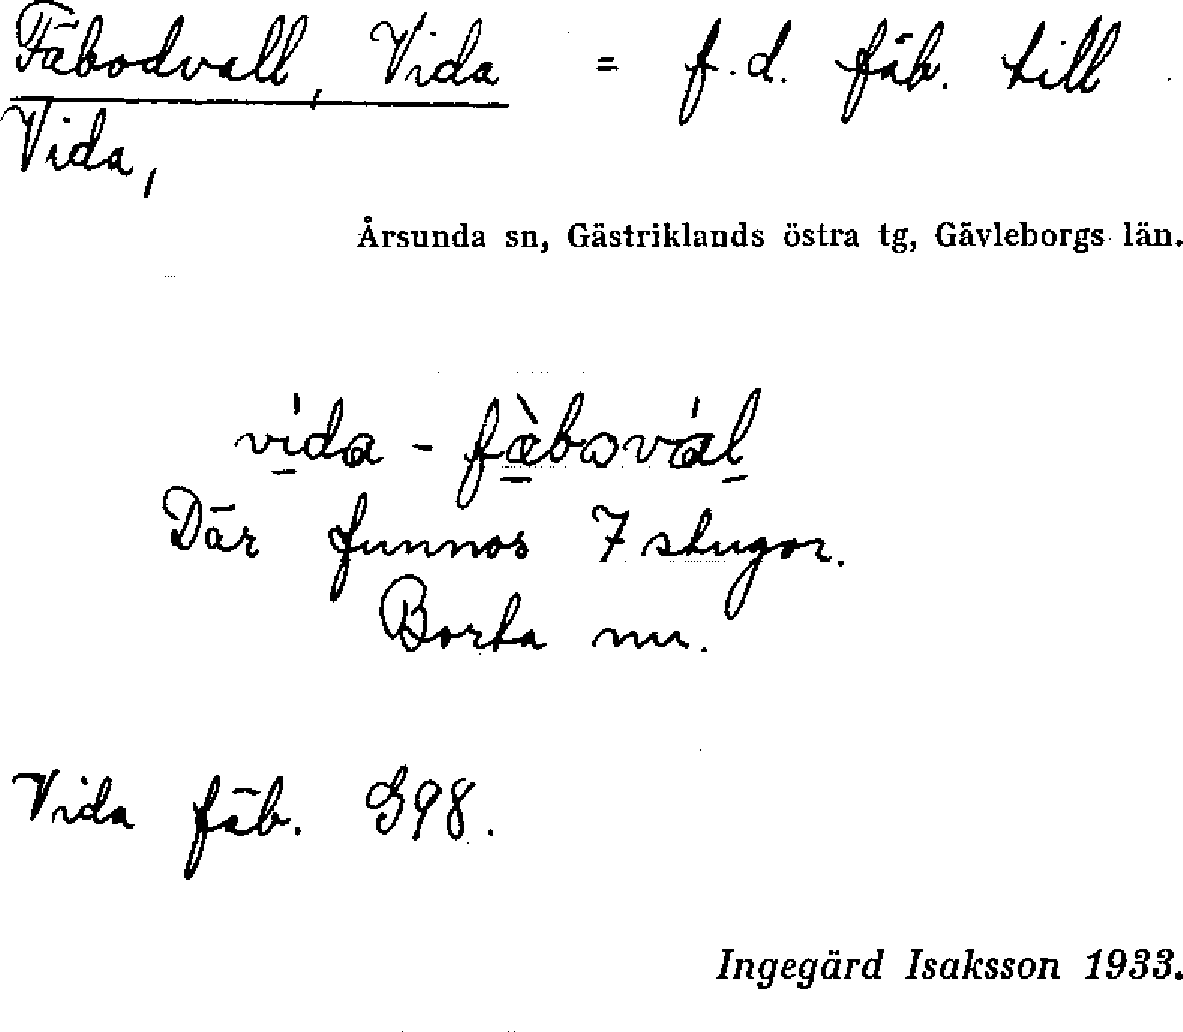 Fäbodvall, Vida = f.d. fäb. till
Vida,
Årsunda sn, Gästriklands östra tg, Gävleborgs län.
vída - fæ̀bσvál
Där funnos 7 stugor.
Borta nu.
Vida fäb. G98.
Ingegärd Isaksson 1933.